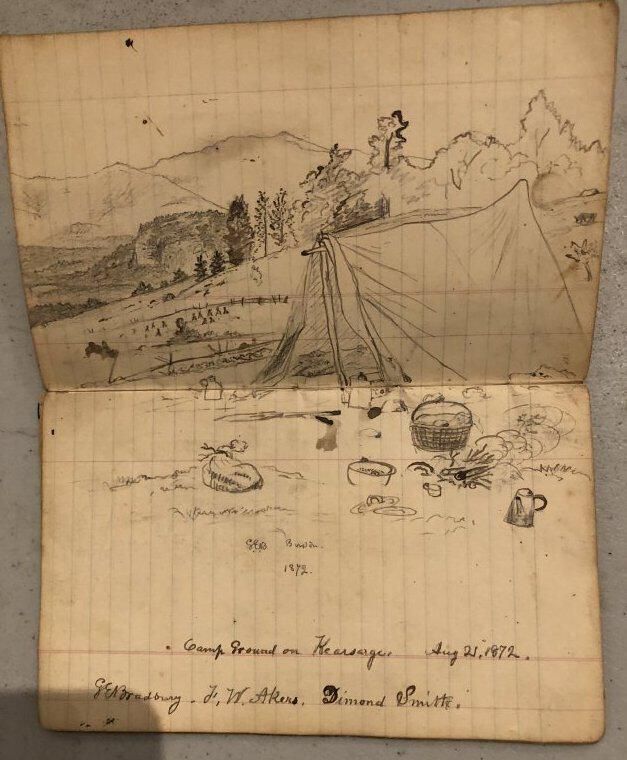 GEB
1872.
Camp Ground on Kearsarge. Aug 21, 1872.
GEBradbury. F, W. Akers. Dimond Smith.